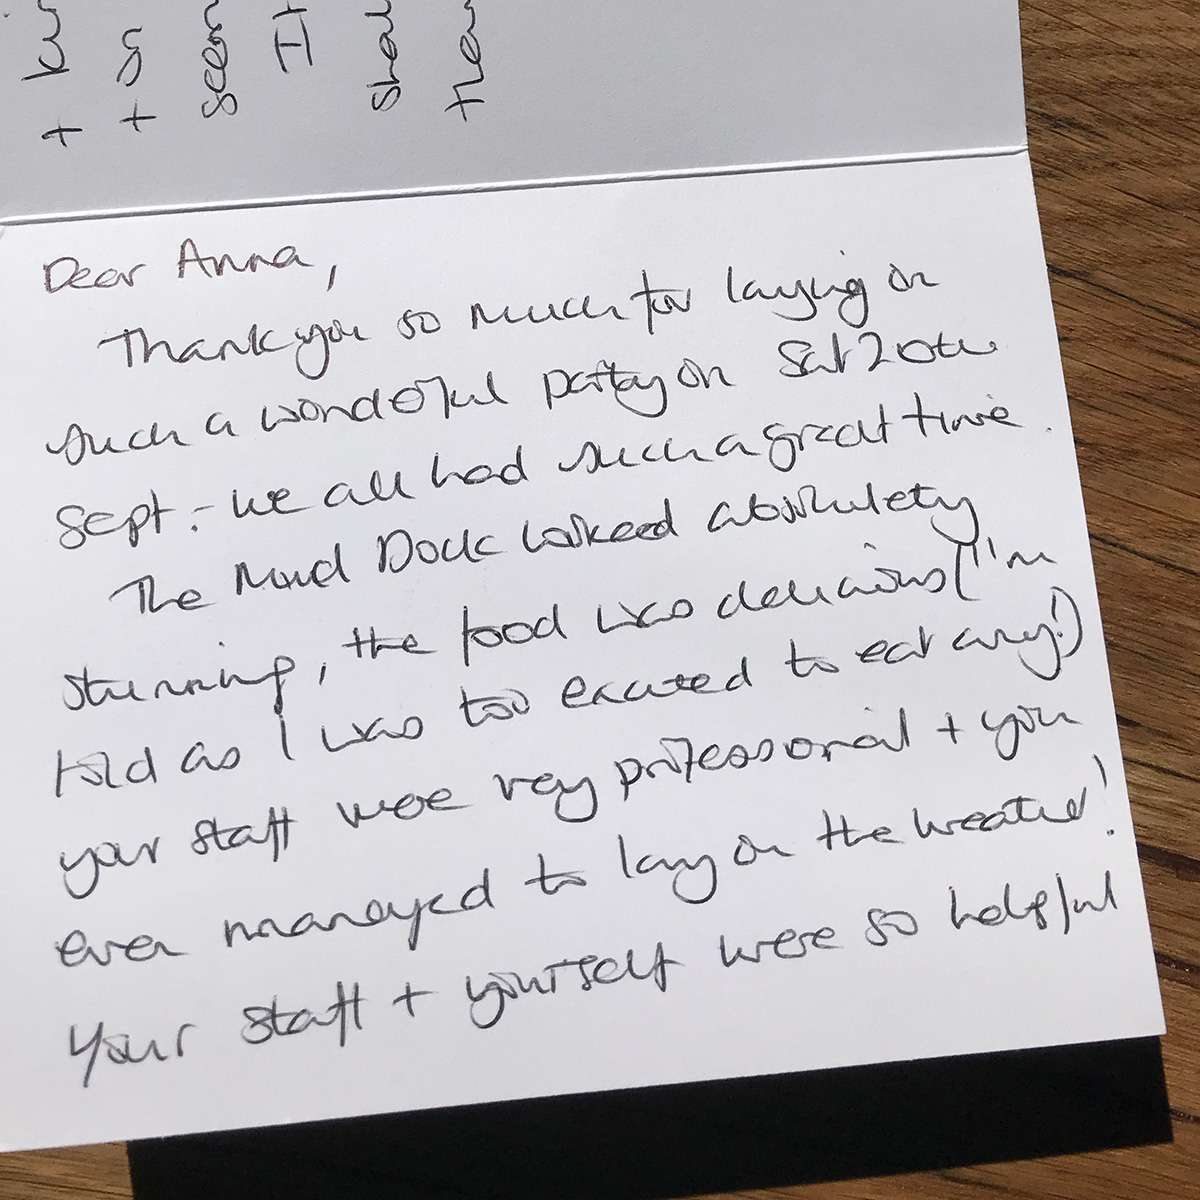 + ki
+ sn
seen
It
shar
thew
Dear Anna,
Thank you so much for laying on
such a wonderful party on Sat 20th
Sept. - we all had such a great time.
The Mud Dock looked absolutely
stunning, the food was delicious (I'm
told as I was too excited to eat any!)
your staff were very professional + you
even managed to lay on the weather!
Your staff + yourself were so helpful